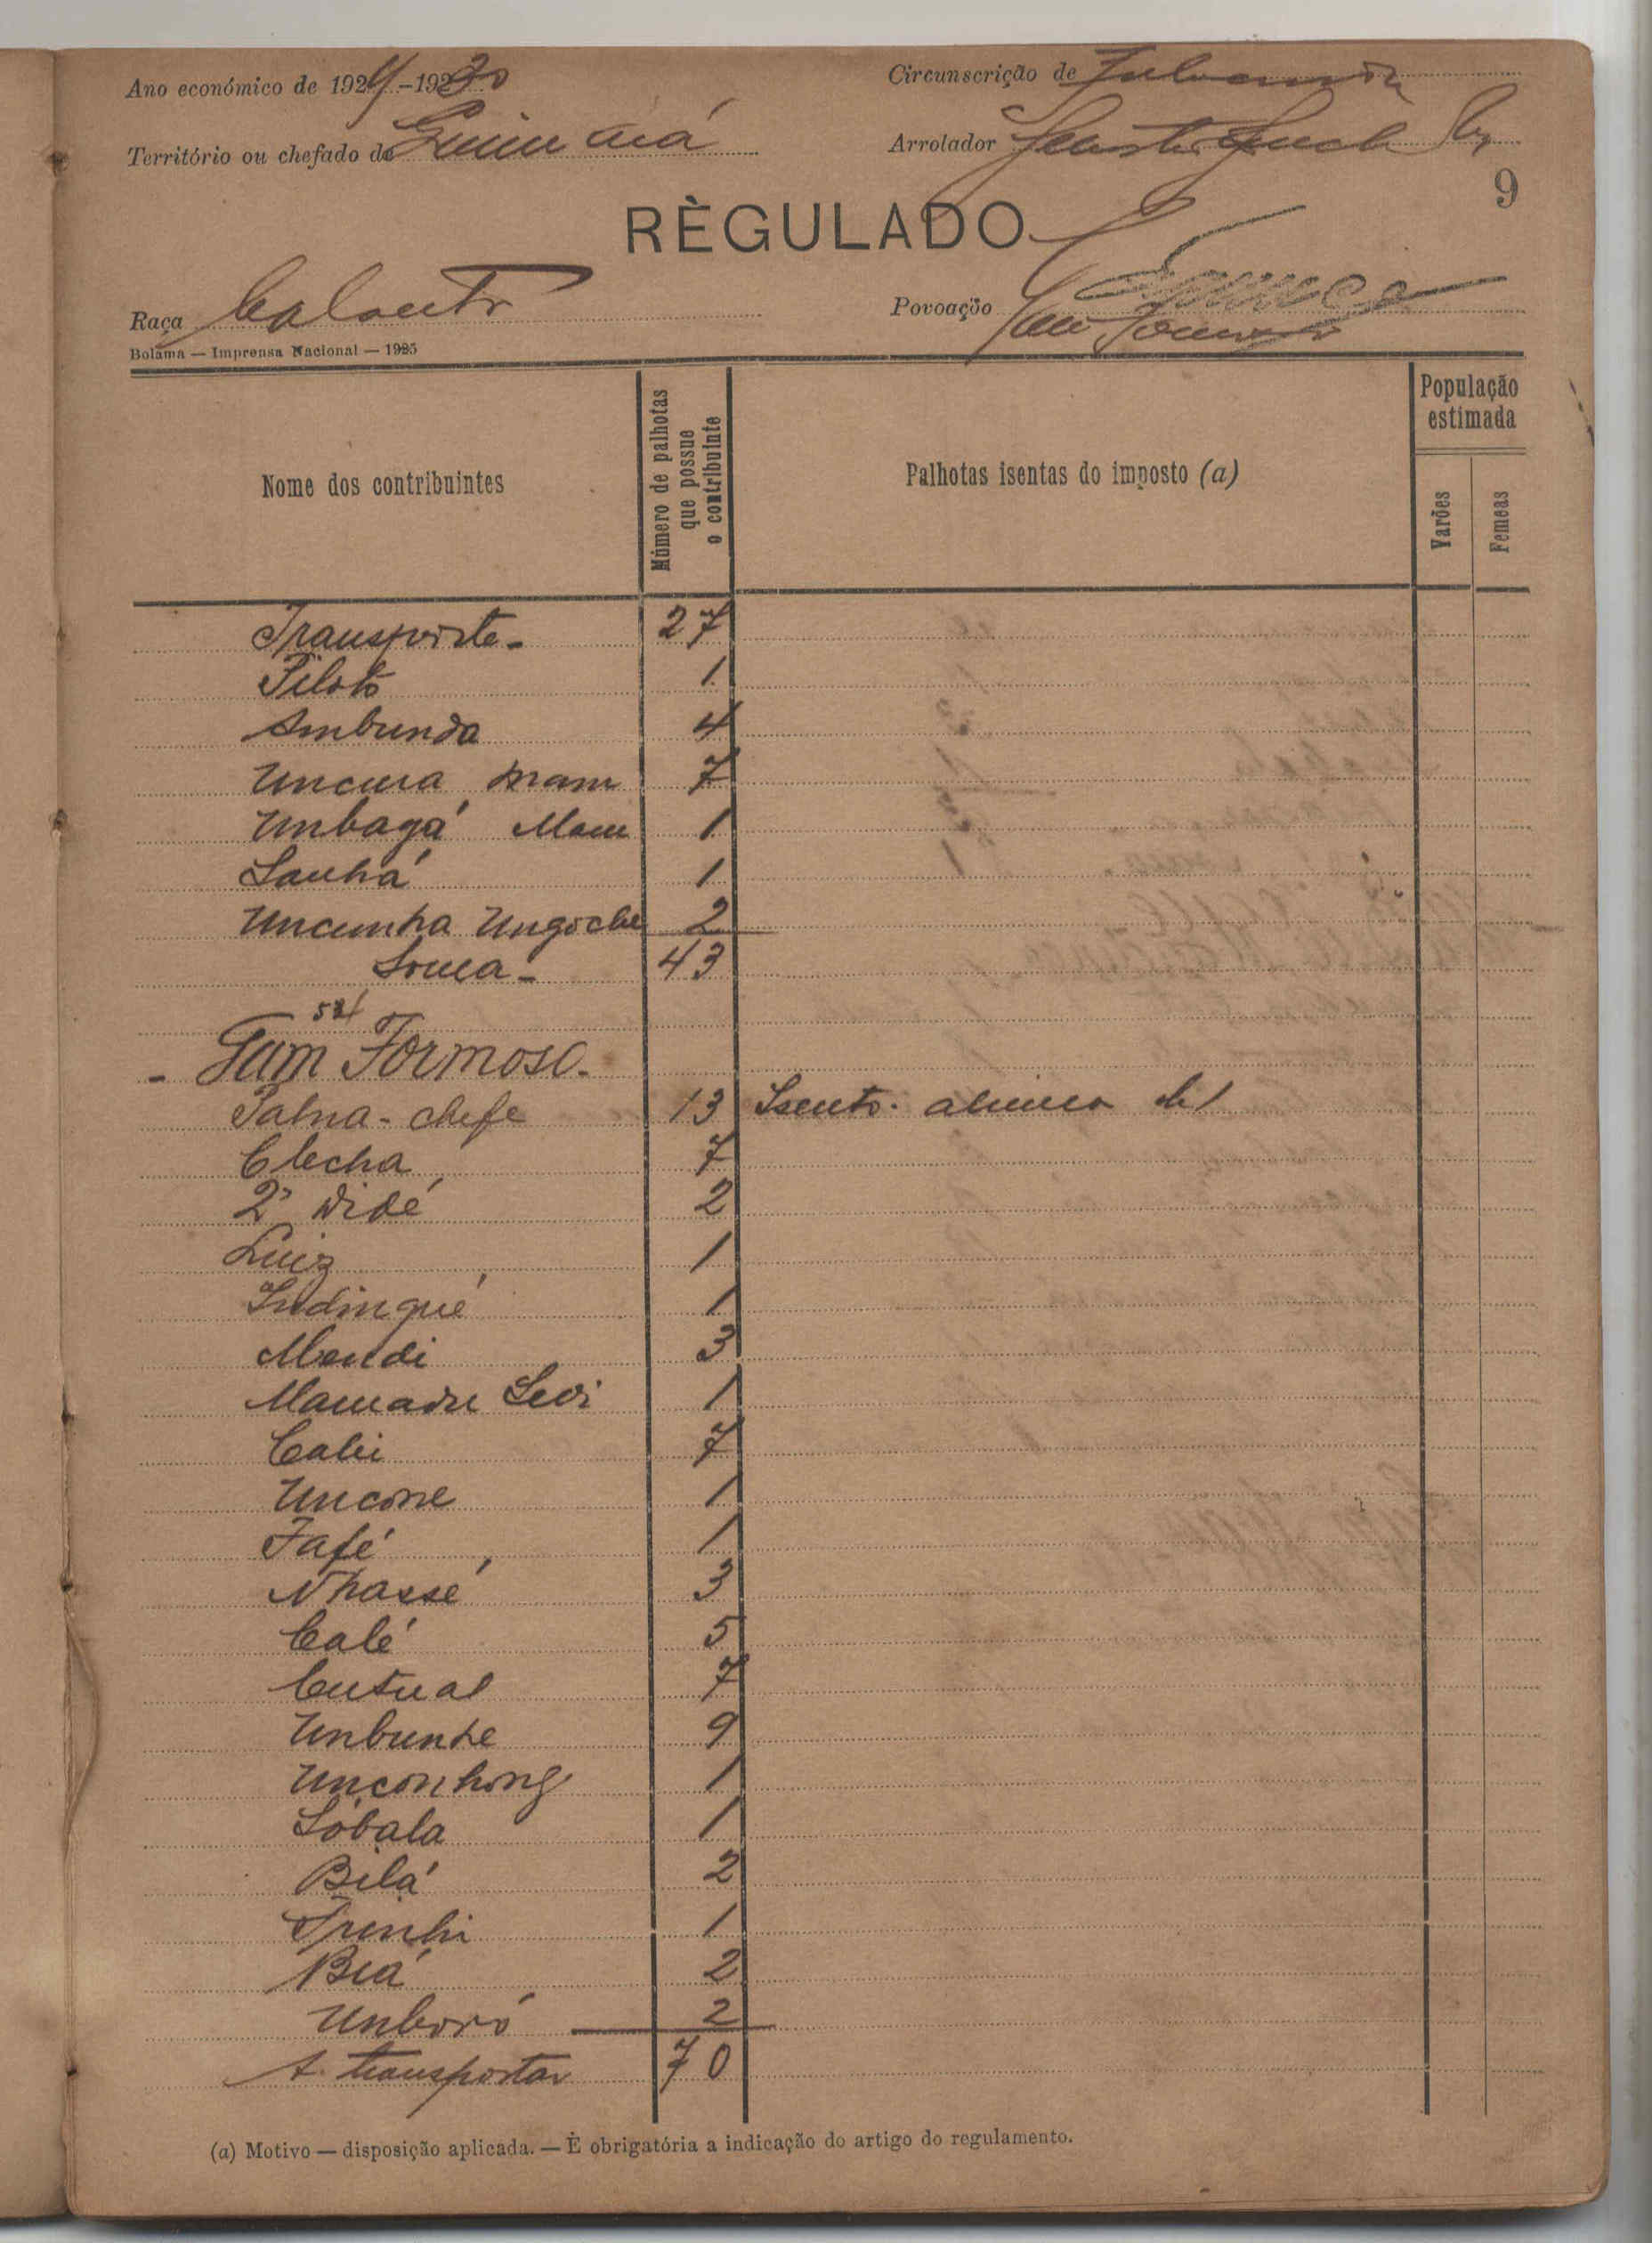 Ano económico de 1929-1930
Circunscrição de
Território ou chefado de
Arrolador
9
RÈGULADO
Raça Balanta
Povoação
Bolama — Imprensa Nacional — 1925
Nome dos contribuintes
Número de palhotas que possue o contribuinte
Palhotas isentas do imposto (a)
População estimada
Varões
Femeas
Transporte - 27
Piloto 1
Ambunda 4
Uncura Mam 7
Unbagá Mam 1
Sanhá 1
Uncunha Ungoche 2
Soma - 43
- Gam Formoso -
Palna - chefe 13 Isento. alinea b/
Clecha 7
2º Didé 2
Luiz 1
Indinqué 1
Mendi 3
Mamadu Seidi 1
Cabi 7
Uncone 1
Fafé 1
Nhassé 3
Calé 5
Cutual 7
Unbunhe 9
Unconhong 1
Sobala 1
Bilá 2
1
Biá 2
Unboró 2
A transportar 70
(a) Motivo — disposição aplicada. — È obrigatória a indicação do artigo do regulamento.